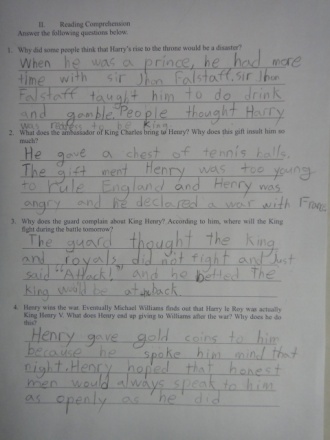 II. Reading Comprehension
Answer the following questions below.
1. Why did some people think that Harry's rise to the throne would be a disaster?
When he was a prince, he had more
time with sir Jhon Falstaff. Sir Jhon
Falstaff taught him to do drink
and gamble. People thought Harry
was to be king.
2. What does the ambassador of King Charles bring to Henry? Why does this gift insult him so
much?
He gave a chest of tennis balls.
The gift ment Henry was too young
to rule England and Henry was
angry and he declared a war with France.
3. Why does the guard complain about King Henry? According to him, where will the King
fight during the battle tomorrow?
The guard thought the king
and royals did not fight and just
said "Attack!" and he betted the
king would be at back.
4. Henry wins the war. Eventually Michael Williams finds out that Harry le Roy was actually
King Henry V. What does Henry end up giving to Williams after the war? Why does he do
this?
Henry gave gold coins to him
because he spoke him mind that
night. Henry hoped that honest
men would always speak to him
as openly as he did